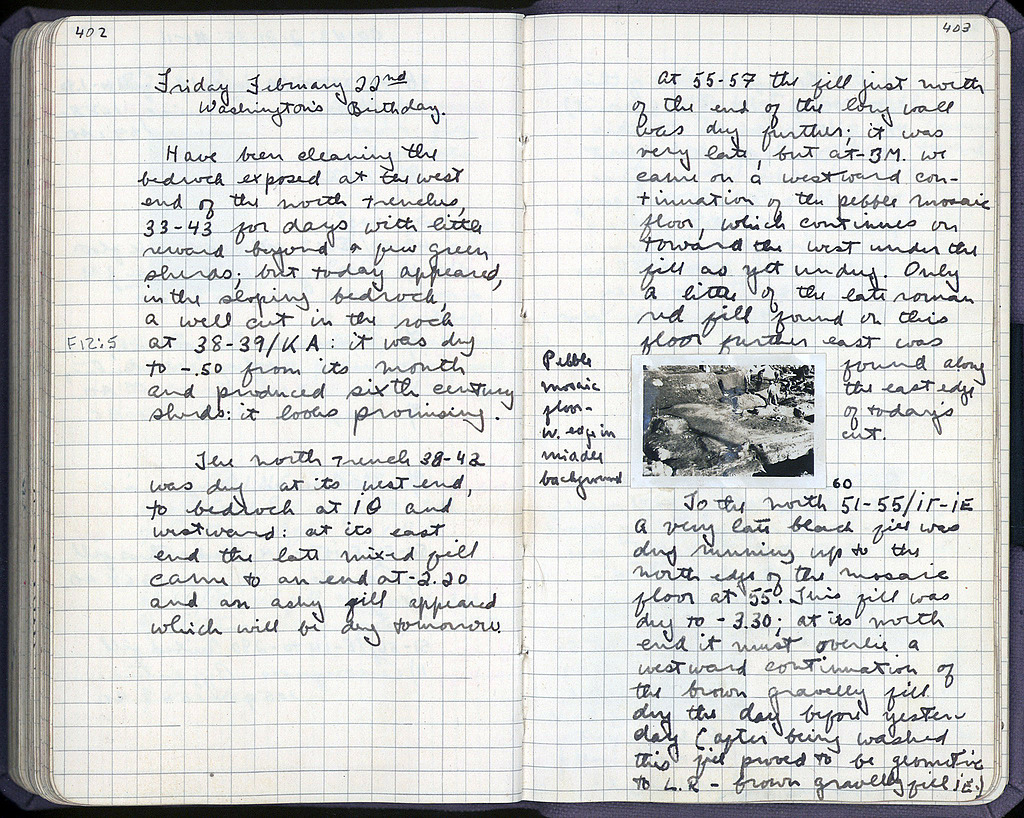 402
Friday February 22nd
Washington's Birthday.
Have been cleaning the
bedrock exposed at the west
end of the north trenches,
33-43 for days with little
reward beyond a few green
sherds; but today appeared,
in the sloping bedrock,
a well cut in the rock
F12:5
at 38-39/KA: it was dug
to -.50 from its mouth
and produced sixth century
sherds: it looks promising.
The north trench 38-42
was dug at its west end,
to bedrock at ιΘ and
westward: at its east
end the late mixed fill
came to an end at -2.20
and an ashy fill appeared
which will be dug tomorrow.
403
At 55-57 the fill just north
of the end of the long wall
was dug further; it was
very late, but at -3M. we
came on a westward con-
tinuation of the pebble mosaic
floor, which continues on
toward the west under the
fill as yet undug. Only
a little of the late roman
red fill found on this
floor further east was
found along
the east edge
of today's
cut.
Pebble
mosaic
floor-
W. edge in
middle
background
60
To the north 51-55/ιΓ-ιΕ
a very late black fill was
dug running up to the
north edge of the mosaic
floor at 55. This fill was
dug to -3.30; at its north
end it must overlie a
westward continuation of
the brown gravelly fill
dug the day before yester-
day (after being washed
this fill proved to be geometric
to L.R - brown gravelly fill ιΕ.)